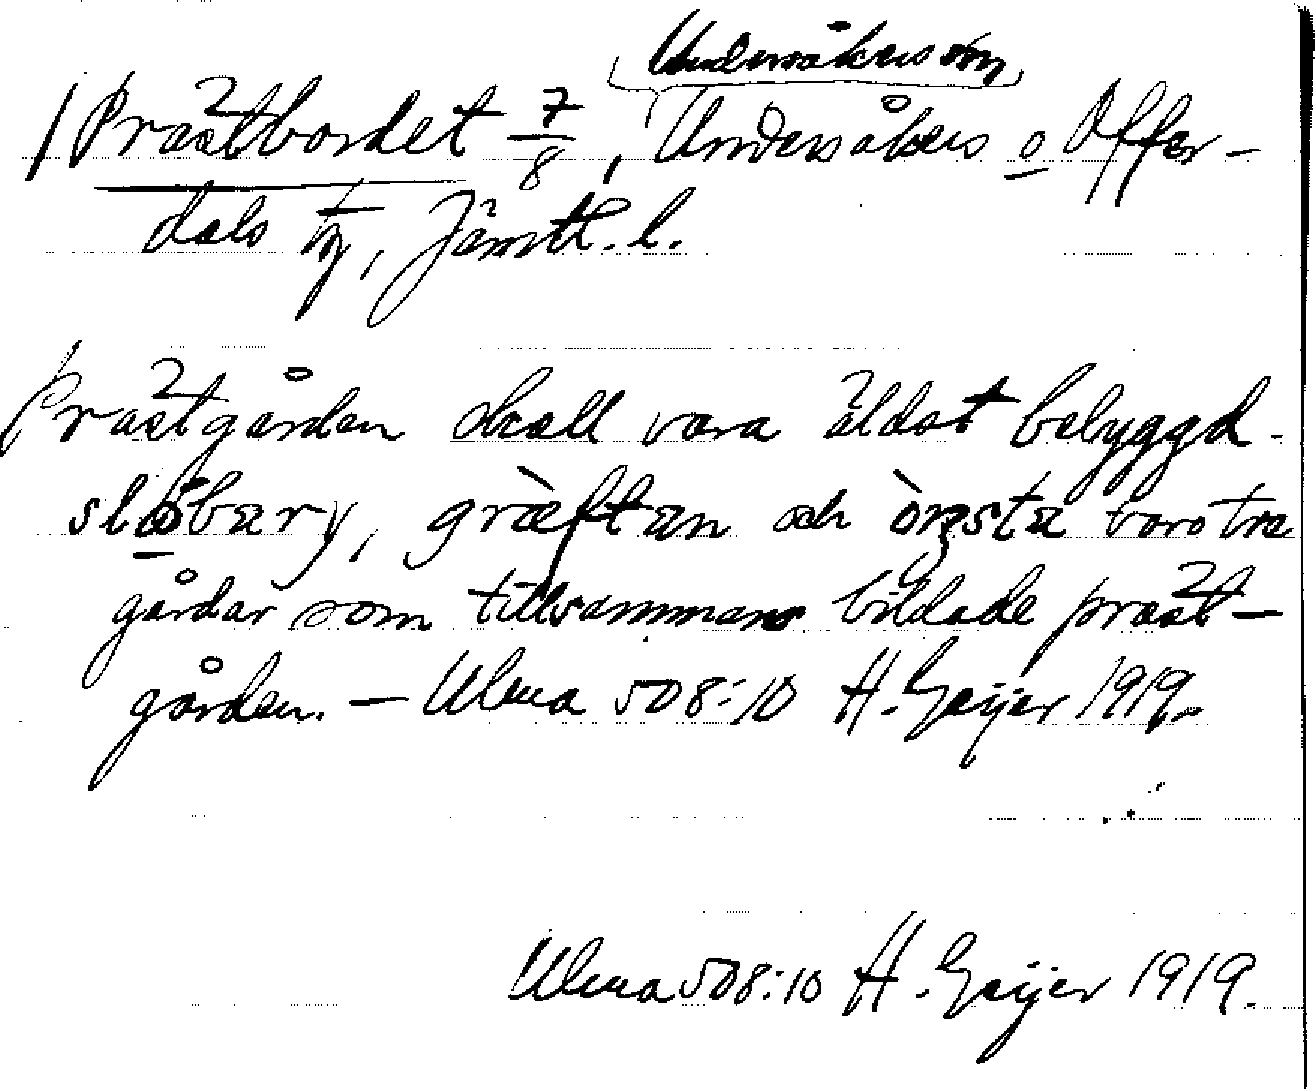 Undersåkers sn
Prästbordet 7/8, Undersåkers o Offer-
dals tg, Jämtl. l.
Prästgården skall vara äldst bebyggd.
slobæry, græftæn och òŋsta voro tre
gårdar som tillsammans bildade präst-
gården. – Ulma 508:10 H. Geijer 1919.
Ulma 508:10 H. Geijer 1919.